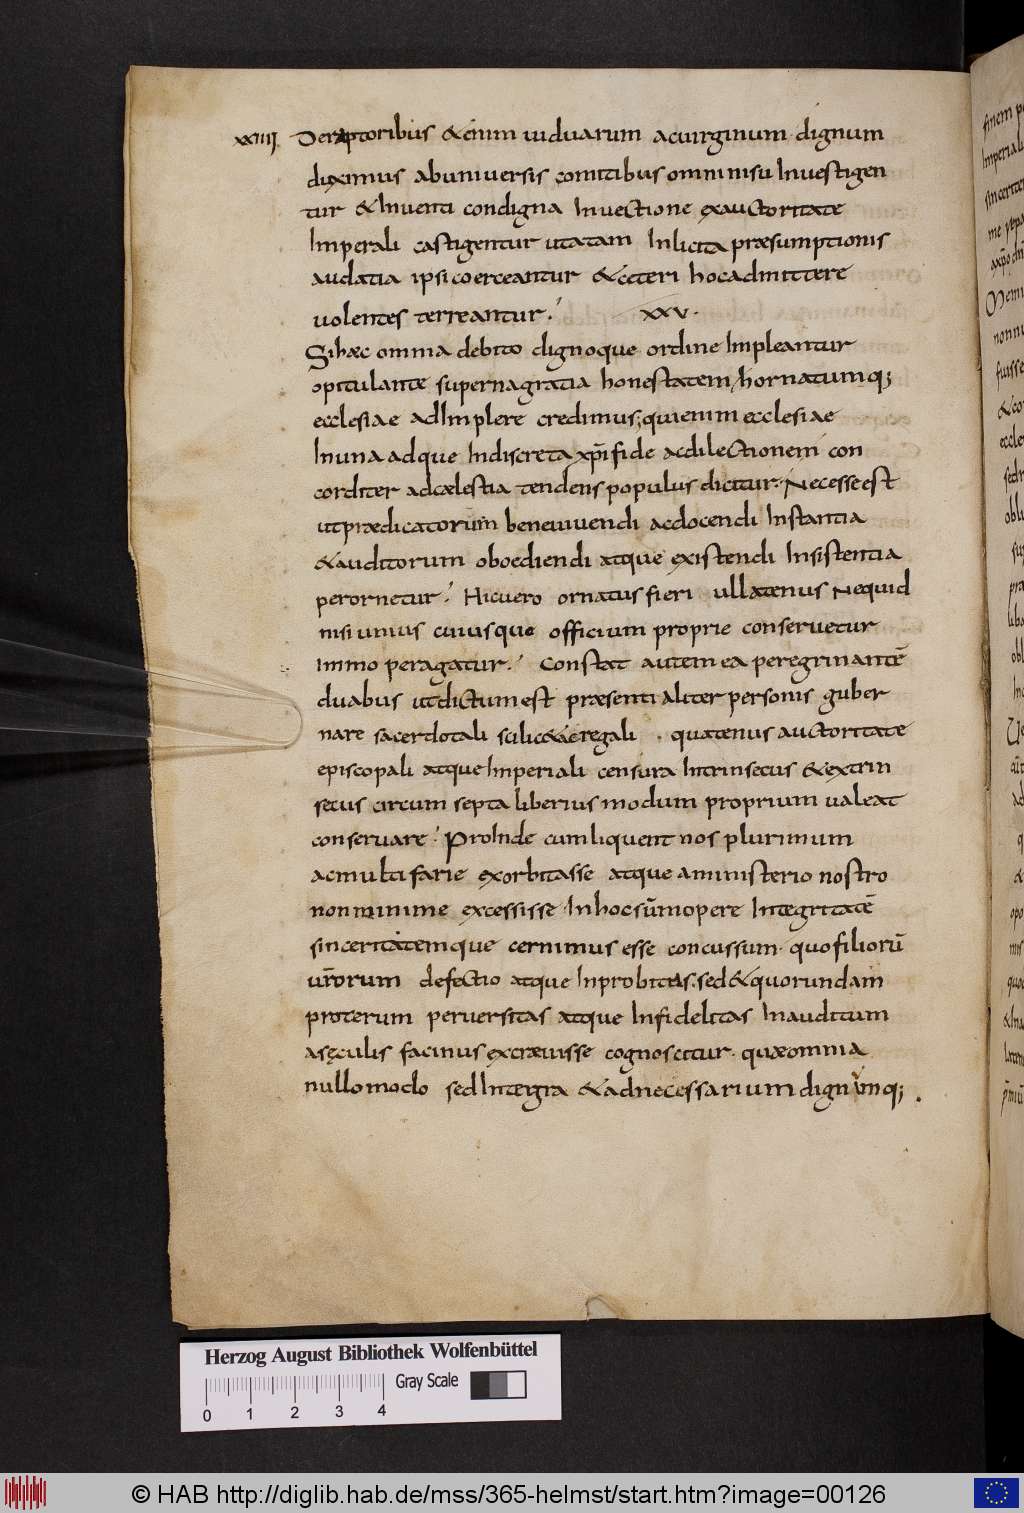 xxiiij Deraptoribus & enim uiduarum acuirginum dignum
duximus abuniuersis comitibus omni nisu Inuestigen
tur & Inuenti condigna Inuectione exauctoritate
Imperali castigentur utatam Inlicita præsumptionis
audatia ipsi coerceantur & ceteri hocadmittere
uolentes terreantur. xxv.
Sihæc omnia debito dignoque ordine Impleantur
opitulante supernagratia honestatem, hornatumq;
ecclesiae adImplere credimus; quienim ecclesiae
Inuna adque Indiscreta xp̄i fide acdilectionem con
corditer adcælestia tendens populus dicitur. Necesse est
utprædicatorum beneuiuendi acdocendi Instantia
& auditorum oboediendi atque existendi Insistentia
perornetur. Hicuero ornatus fieri ullatenus Nequid
nisi unius cuiusque officium proprie conseruetur
Immo peragatur. Constat autem ea peregrinantē
duabus utdictumest præsentialiter personis guber
nare sacerdotali scilic& ac regali . quatenus auctoritate
episcopali atque Imperiali censura Intrinsecus & extrin
secus circum septa liberius modum proprium ualeat
conseruare. ProInde cumliquent nos plurimum
acmultifarie exorbitasse atque aministerio nostro
nonminime excessisse Inhoc sūmopere Integritatē
sinceritatemque cernimus esse concussum. quofiliorū
ur̄orum defectio atque Inprobitas. sed & quorundam
proterum peruersitas atque Infidelitas Inauditum
asęculis facinus excræuisse cognoscitur. quæomnia
nullomodo sed Integra & adnecessarium dignumq;
Herzog August Bibliothek Wolfenbüttel
Gray Scale
0 1 2 3 4
© HAB http://diglib.hab.de/mss/365-helmst/start.htm?image=00126